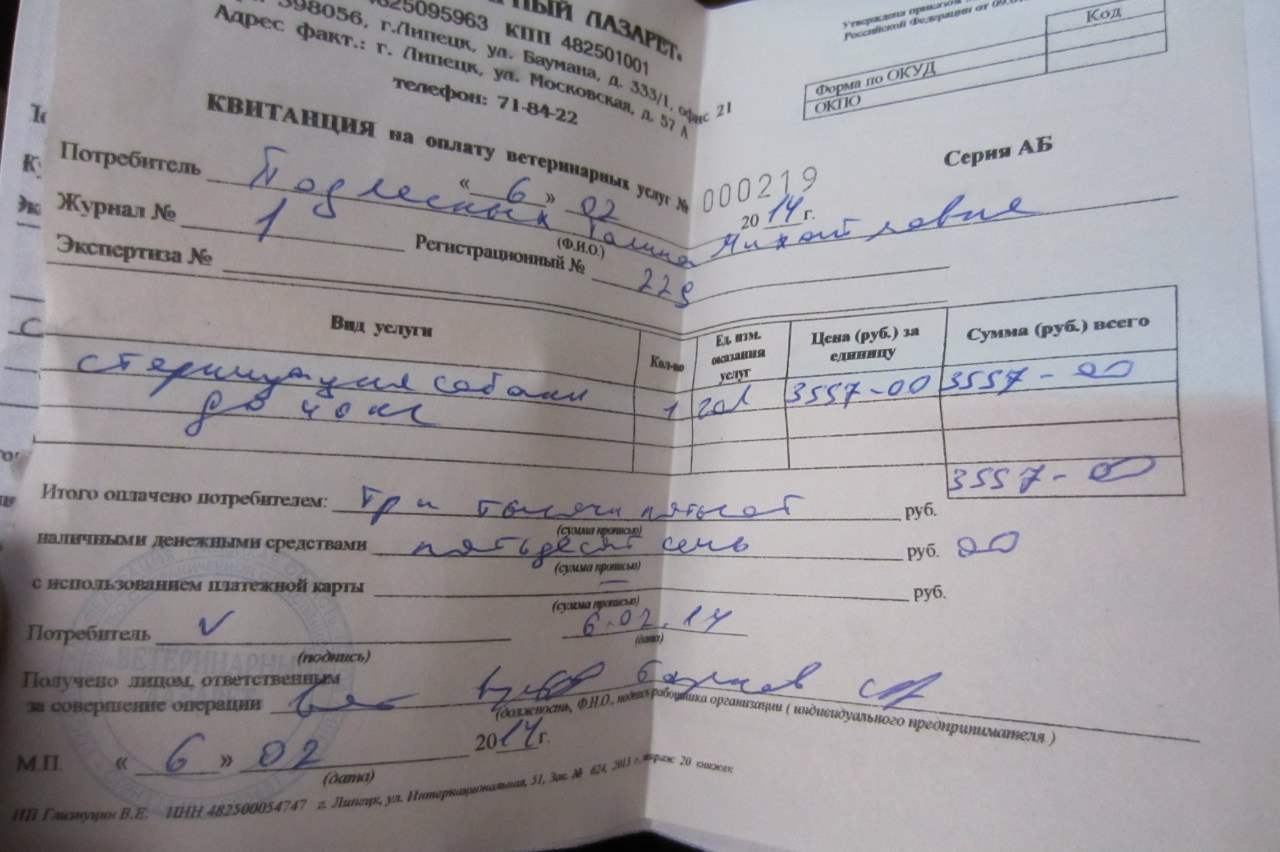 НЫЙ ЛАЗАРЕТ»
4825095963 КПП 482501001
398056, г.Липецк, ул. Баумана, д. 333/1, офис 21
Адрес факт.: г. Липецк, ул. Московская, д. 57 А
телефон: 71-84-22
Утверждена приказом
Российской Федерации от 09.0
Код
Форма по ОКУД
ОКПО
КВИТАНЦИЯ на оплату ветеринарных услуг № 000219
Серия АБ
« 6 » 02 2014 г.
Потребитель Подлесных Галина Михайловна
(Ф.И.О.)
Журнал № 1 Регистрационный № 229
Экспертиза №
Вид услуги Кол-во Ед. изм. оказания услуг Цена (руб.) за единицу Сумма (руб.) всего
стерилизация собаки 1 гол 3557-00 3557-00
до 40 кг
3557-00
Итого оплачено потребителем: Три тысячи пятьсот руб.
(сумма прописью)
наличными денежными средствами пятьдесят семь руб. 00
(сумма прописью)
с использованием платежной карты — руб.
(сумма прописью)
Потребитель 6.02.14
(подпись) (дата)
Получено лицом, ответственным
за совершение операции вет врач
(должность, Ф.И.О., подпись работника организации ( индивидуального предпринимателя )
М.П. « 6 » 02 2014 г.
(дата)
ИП Глизнуцин В.Е. ИНН 482500054747 г. Липецк, ул. Интернациональная, 51, Зак. № 624, 2013 г., тираж 20 книжек
ВЕТЕРИНАРНЫЙ